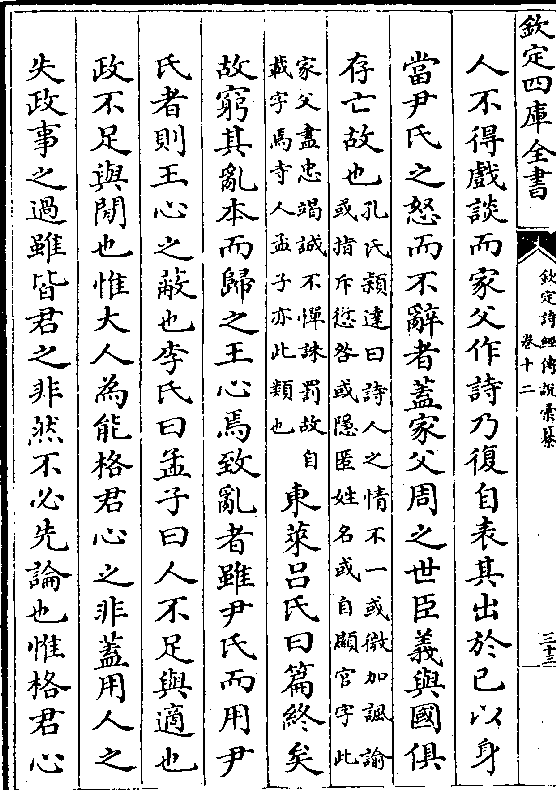 欽定四庫全書
欽定詩經傳說彙纂
卷十二
三十三
人不得戲談而家父作詩乃復自表其出於己以身
當尹氏之怒而不辭者蓋家父周之世臣義與國俱
存亡故也孔氏穎達曰詩人之情不一或微加諷諭
或指斥愆咎或隱匿姓名或自顯官字此
家父盡忠竭誠不憚誅罰故自
載字焉寺人孟子亦此類也
東萊呂氏曰篇終矣
故窮其亂本而歸之王心焉致亂者雖尹氏而用尹
氏者則王心之蔽也李氏曰孟子曰人不足與適也
政不足與閒也惟大人為能格君心之非蓋用人之
失政事之過雖皆君之非然不必先論也惟格君心